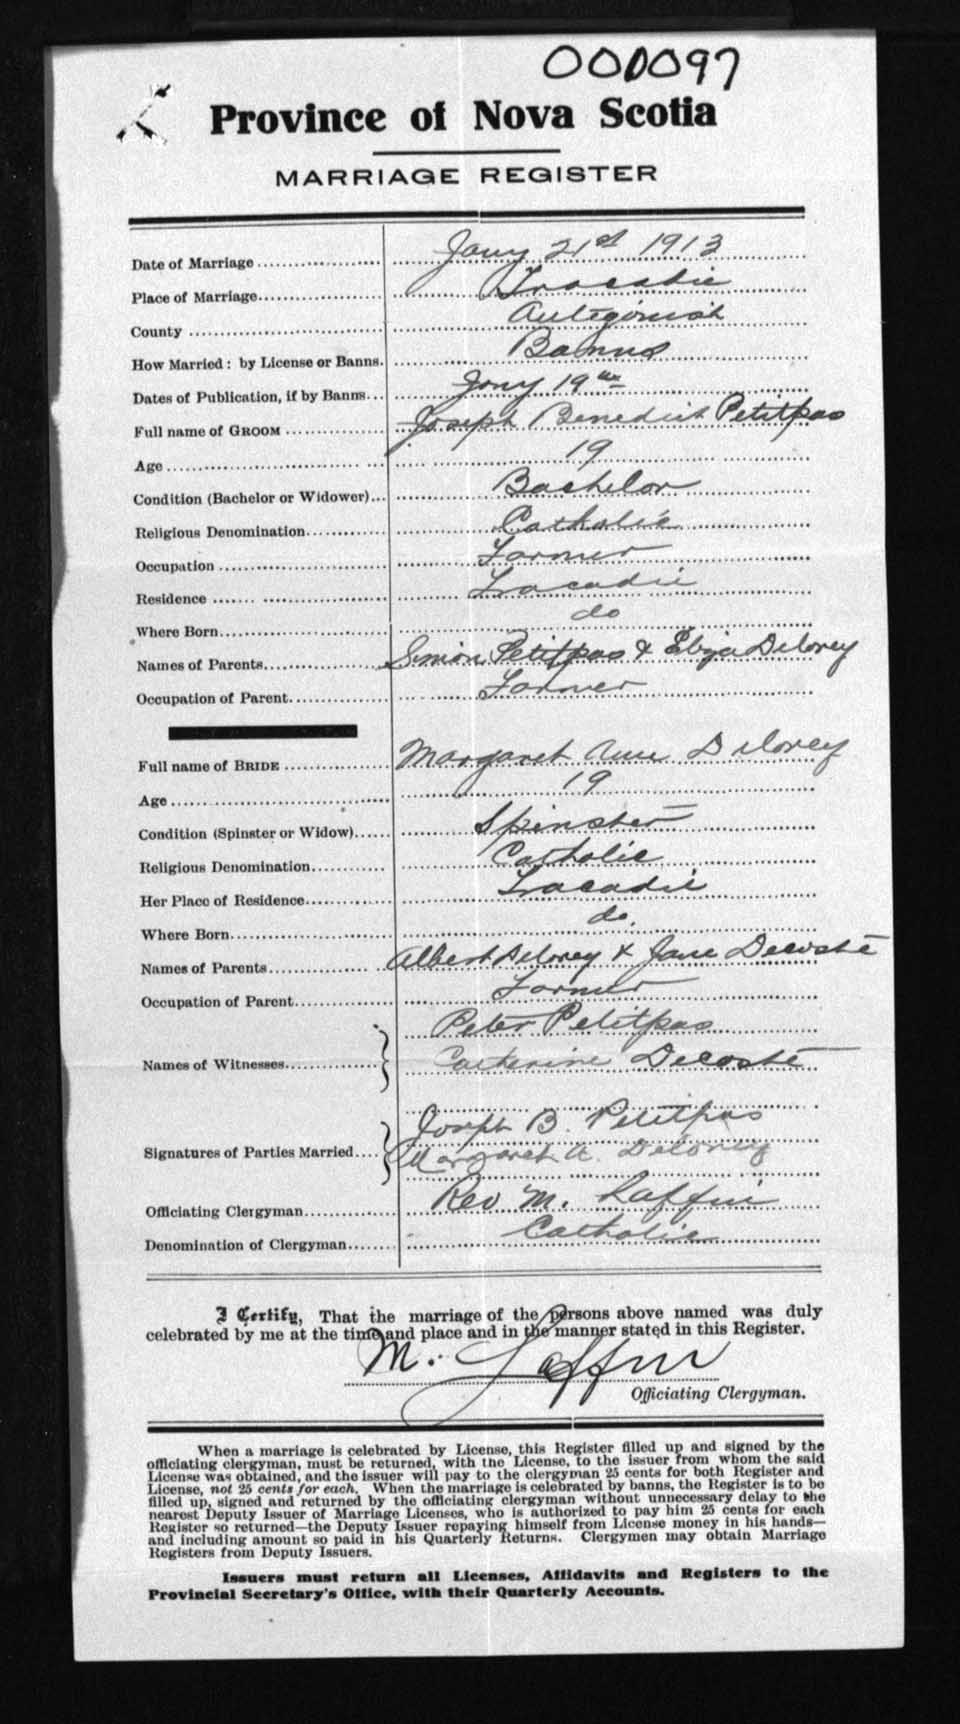 000097
Province of Nova Scotia
MARRIAGE REGISTER
Date of Marriage Jany 21st 1913
Place of Marriage Tracadie
County Antigonish
How Married: by License or Banns. Banns
Dates of Publication, if by Banns Jany 19th
Full name of GROOM Joseph Benedict Petitpas
Age 19
Condition (Bachelor or Widower) Bachelor
Religious Denomination Catholic
Occupation Farmer
Residence Tracadie
Where Born do
Names of Parents Simon Petitpas & Eliza Delorey
Occupation of Parent Farmer
Full name of BRIDE Margaret Ann Delorey
Age 19
Condition (Spinster or Widow) Spinster
Religious Denomination Catholic
Her Place of Residence Tracadie
Where Born do.
Names of Parents Albert Delorey & Jane Decoste
Occupation of Parent Farmer
Peter Petitpas
Names of Witnesses Catherine Decoste
Joseph B. Petitpas
Signatures of Parties Married Margaret A. Delorey
Officiating Clergyman Rev M. Laffin
Denomination of Clergyman Catholic
I Certify, That the marriage of the persons above named was duly
celebrated by me at the time and place and in the manner stated in this Register.
M. Laffin
Officiating Clergyman.
When a marriage is celebrated by License, this Register filled up and signed by the
officiating clergyman, must be returned, with the License, to the issuer from whom the said
License was obtained, and the issuer will pay to the clergyman 25 cents for both Register and
License, not 25 cents for each. When the marriage is celebrated by banns, the Register is to be
filled up, signed and returned by the officiating clergyman without unnecessary delay to the
nearest Deputy Issuer of Marriage Licenses, who is authorized to pay him 25 cents for each
Register so returned—the Deputy Issuer repaying himself from License money in his hands—
and including amount so paid in his Quarterly Returns. Clergymen may obtain Marriage
Registers from Deputy Issuers.
Issuers must return all Licenses, Affidavits and Registers to the
Provincial Secretary's Office, with their Quarterly Accounts.